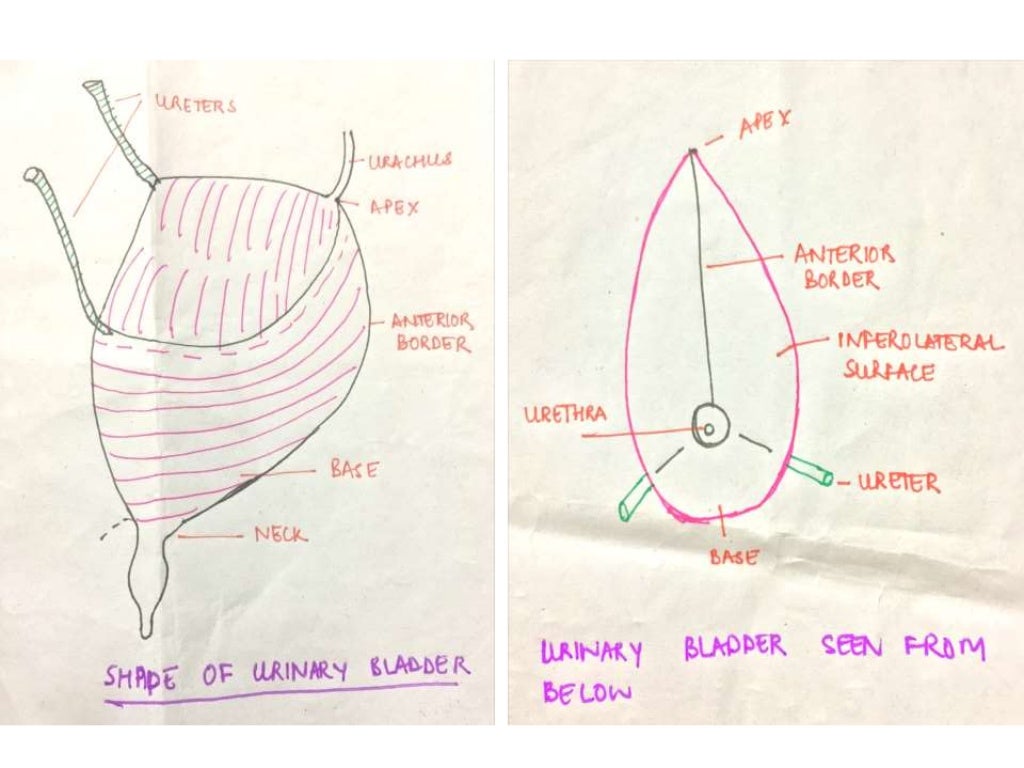 URETERS
URACHUS
APEX
ANTERIOR
BORDER
BASE
NECK
SHAPE OF URINARY BLADDER
APEX
ANTERIOR
BORDER
INFEROLATERAL
SURFACE
URETHRA
URETER
BASE
URINARY BLADDER SEEN FROM
BELOW